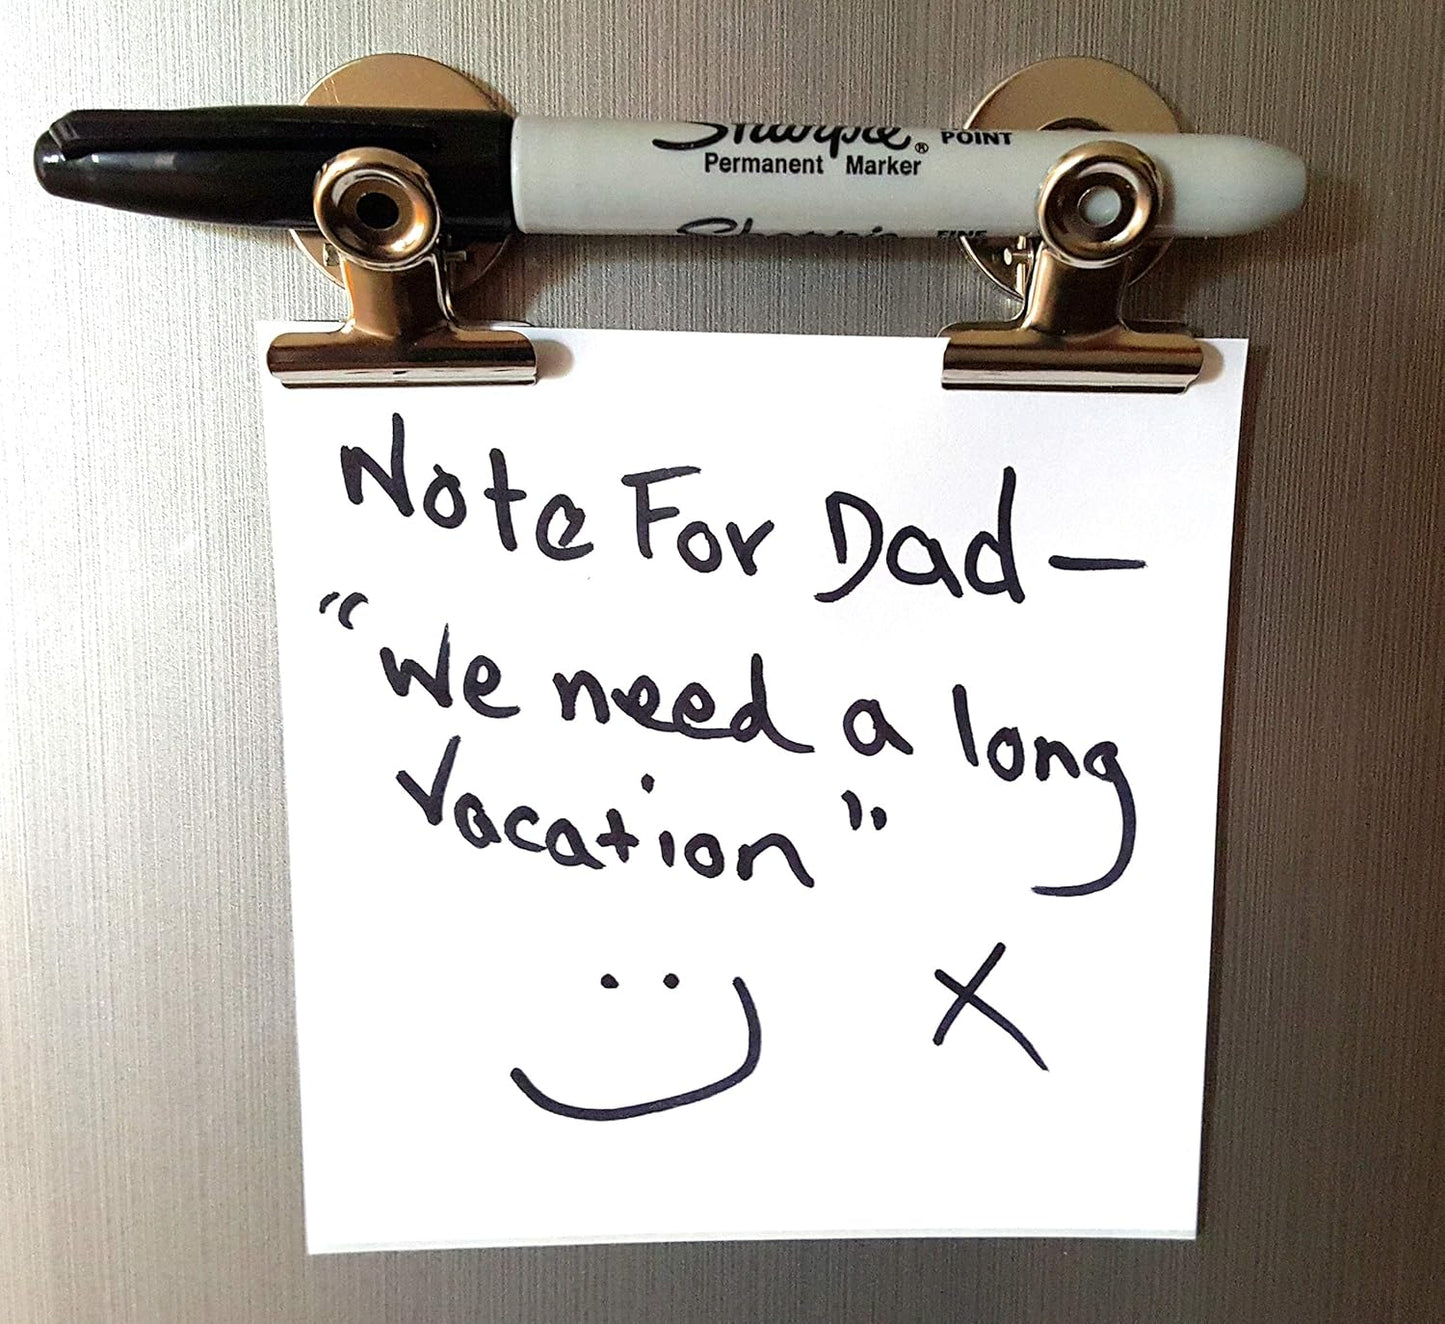 Sharpie® POINT
Permanent Marker
Sharpie FINE
Note For Dad —
“We need a long
Vacation”
X